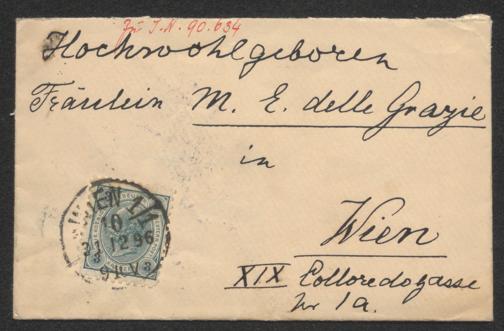 Zu I.N. 90.634
Hochwohlgeboren
Fräulein M. E. delle Grazie
in
Wien
XIX Colloredogasse
Nr 1a.
WIEN 1/1
31 12 96